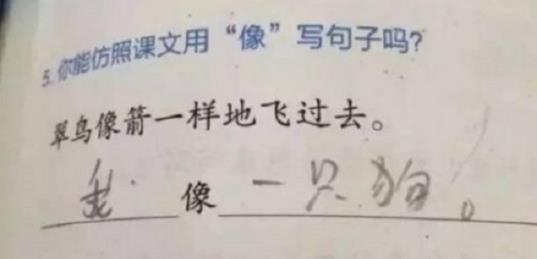 5.你能仿照课文用“像”写句子吗?
翠鸟像箭一样地飞过去。
我像一只狗。